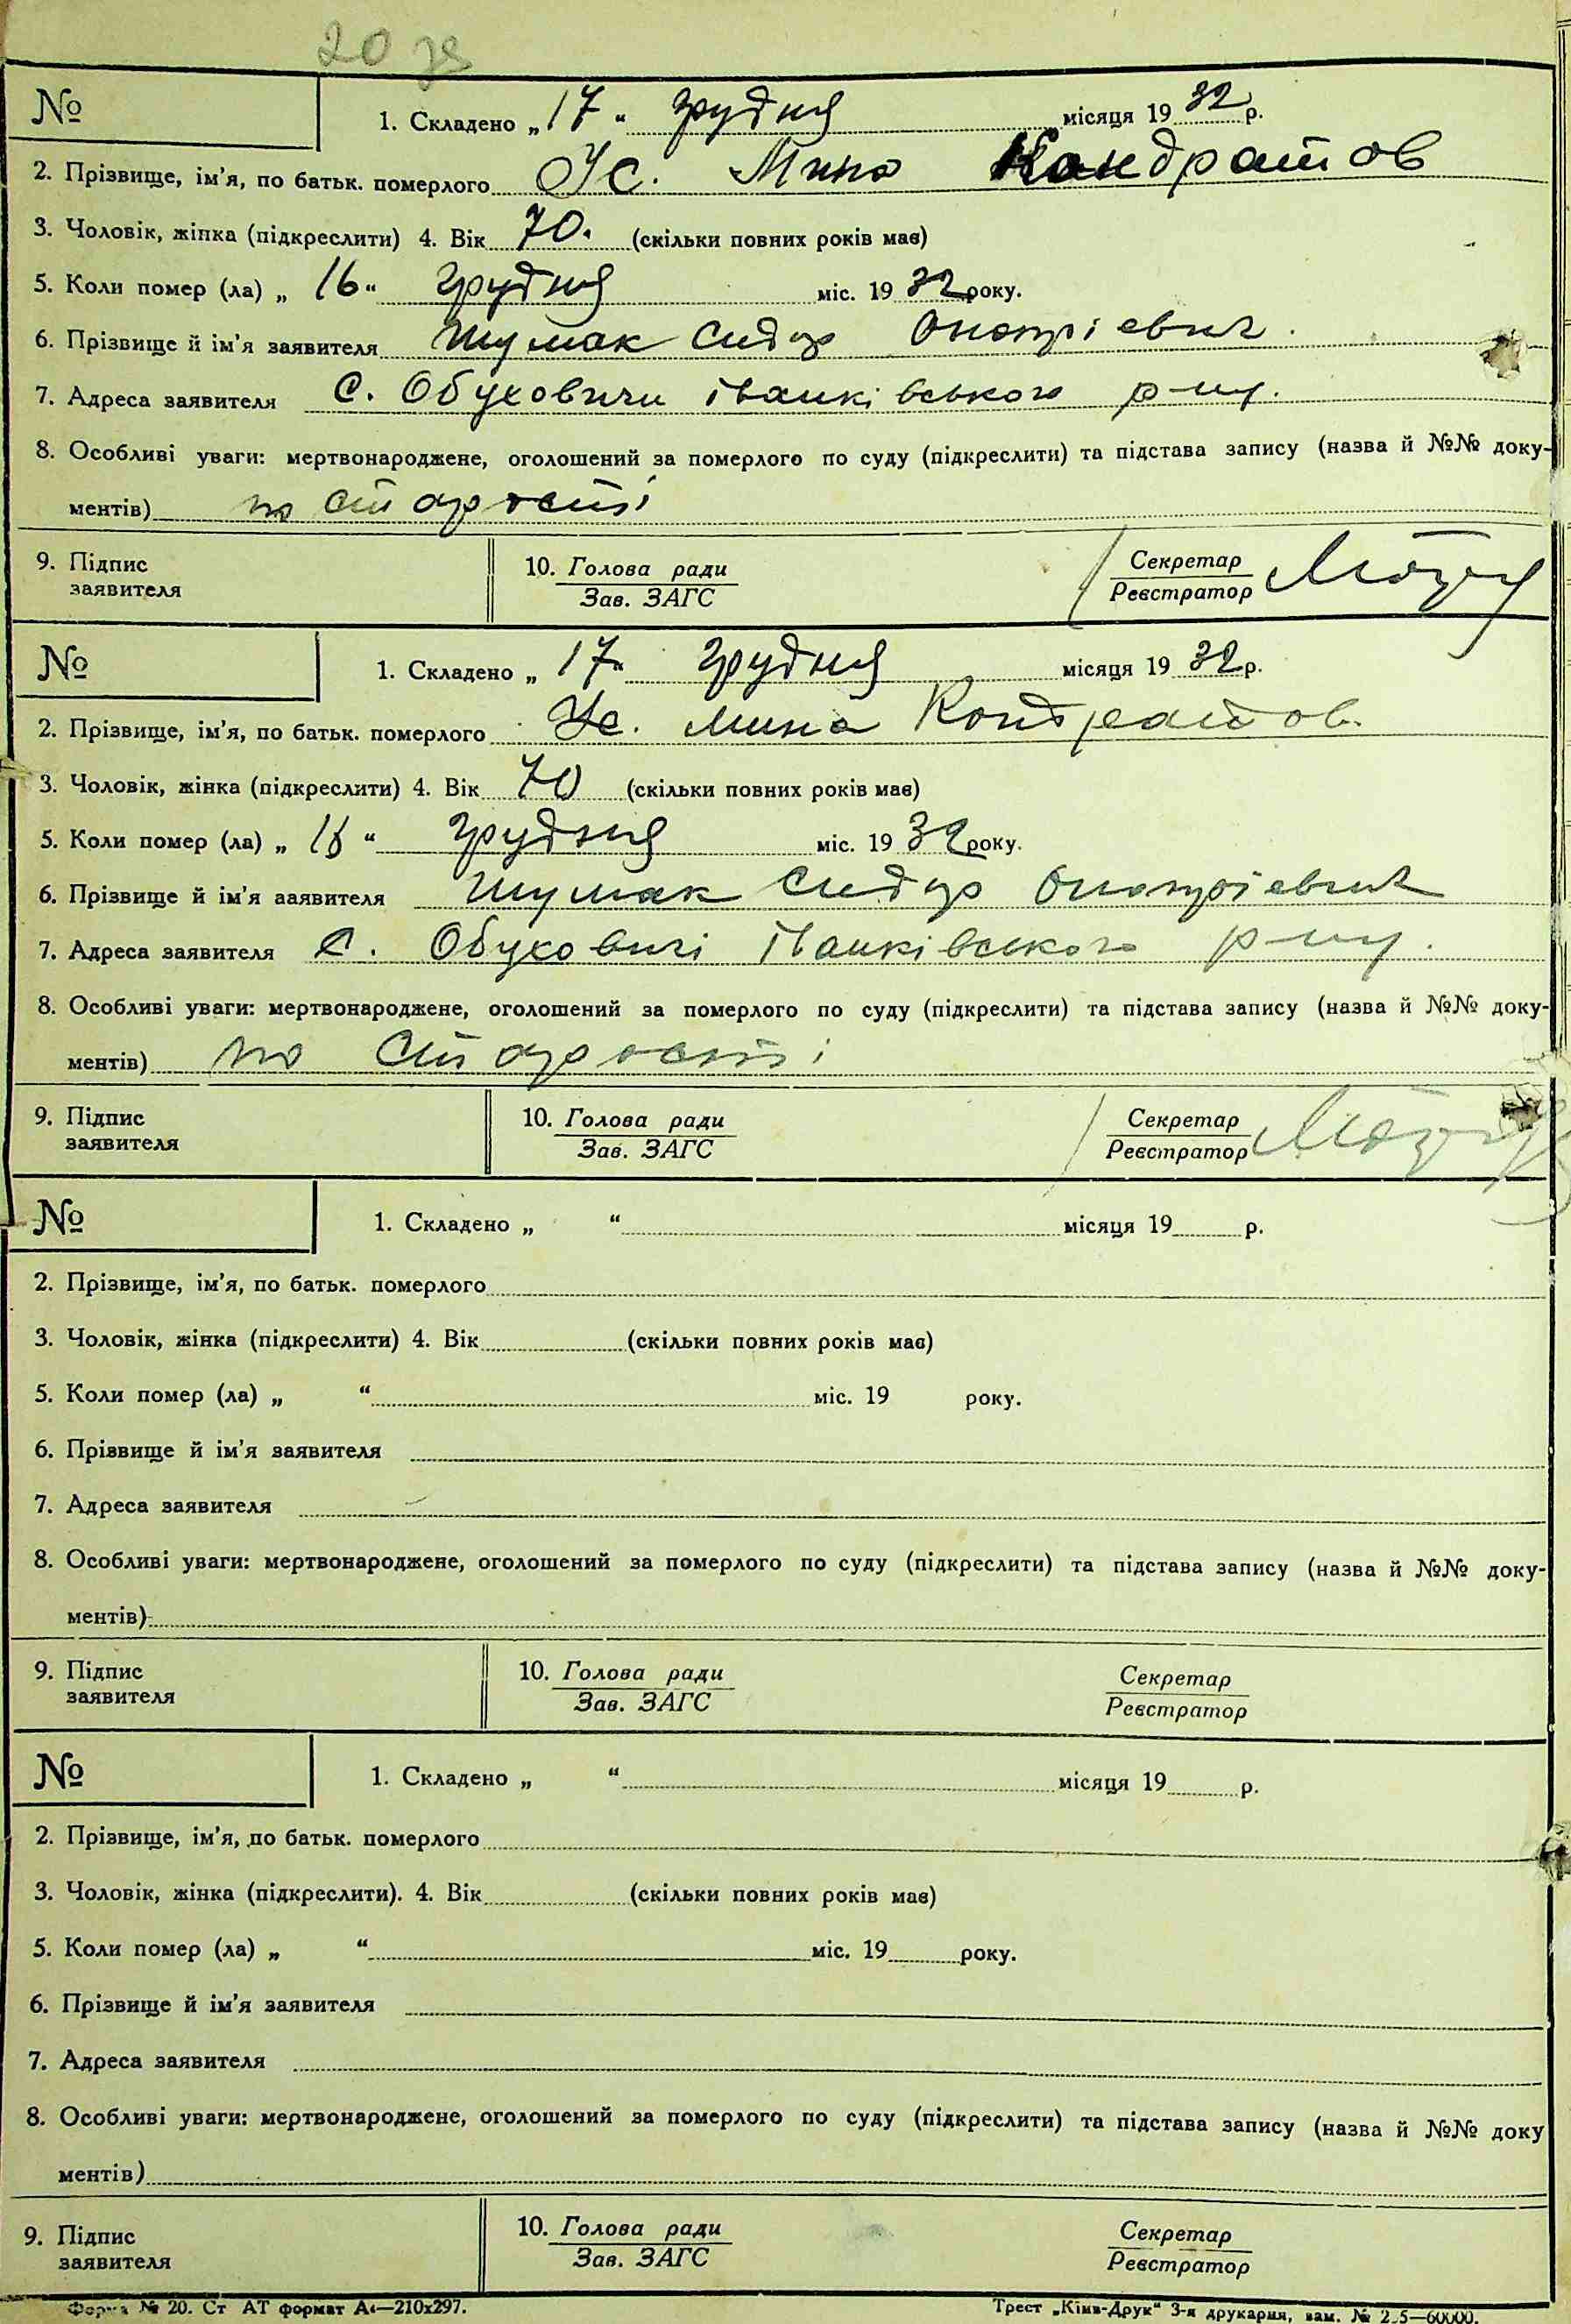 20 зв
№ 1. Складено „17“ грудня місяця 1932 р.
2. Прізвище, ім'я, по батьк. померлого Ус. Мина Кондратов
3. Чоловік, жінка (підкреслити) 4. Вік 70. (скільки повних років має)
5. Коли помер (ла) „16“ грудня міс. 1932 року.
6. Прізвище й ім'я заявителя Шумак Сидор Онопрієвич.
7. Адреса заявителя с. Обуховичи Іванківського р-ну.
8. Особливі уваги: мертвонароджене, оголошений за померлого по суду (підкреслити) та підстава запису (назва й №№ доку-
ментів) по старости
9. Підпис заявителя 10. Голова ради Зав. ЗАГС Секретар Реєстратор
№ 1. Складено „17“ грудня місяця 1932 р.
2. Прізвище, ім'я, по батьк. померлого Ус. Мина Кондратов.
3. Чоловік, жінка (підкреслити) 4. Вік 70 (скільки повних років має)
5. Коли помер (ла) „16“ грудня міс. 1932 року.
6. Прізвище й ім'я заявителя Шумак Сидор Онопрієвич
7. Адреса заявителя с. Обуховичі Іванківського р-ну.
8. Особливі уваги: мертвонароджене, оголошений за померлого по суду (підкреслити) та підстава запису (назва й №№ доку-
ментів) по старості
9. Підпис заявителя 10. Голова ради Зав. ЗАГС Секретар Реєстратор
№ 1. Складено „ “ місяця 19 р.
2. Прізвище, ім'я, по батьк. померлого
3. Чоловік, жінка (підкреслити) 4. Вік (скільки повних років має)
5. Коли помер (ла) „ “ міс. 19 року.
6. Прізвище й ім'я заявителя
7. Адреса заявителя
8. Особливі уваги: мертвонароджене, оголошений за померлого по суду (підкреслити) та підстава запису (назва й №№ доку-
ментів)
9. Підпис заявителя 10. Голова ради Зав. ЗАГС Секретар Реєстратор
№ 1. Складено „ “ місяця 19 р.
2. Прізвище, ім'я, по батьк. померлого
3. Чоловік, жінка (підкреслити). 4. Вік (скільки повних років має)
5. Коли помер (ла) „ “ міс. 19 року.
6. Прізвище й ім'я заявителя
7. Адреса заявителя
8. Особливі уваги: мертвонароджене, оголошений за померлого по суду (підкреслити) та підстава запису (назва й №№ доку
ментів)
9. Підпис заявителя 10. Голова ради Зав. ЗАГС Секретар Реєстратор
Форма № 20. Ст АТ формат А4—210х297. Трест „Київ-Друк“ 3-я друкарня, зам. №